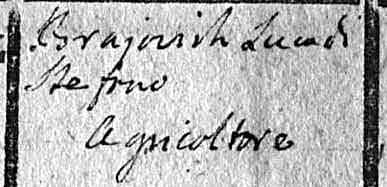 Brajovich Luca di
Stefano
Agricoltore